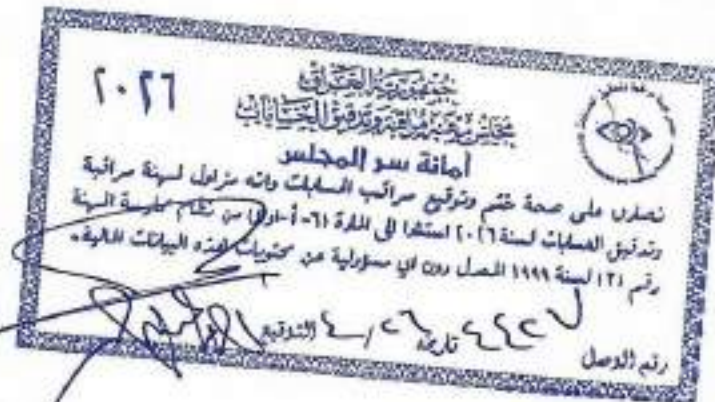 ٢٠٢٦
جمهورية العراق
مجلس مهنة مراقبة وتدقيق الحسابات
أمانة سر المجلس
نصادق على صحة ختم وتوقيع مراقب الحسابات وانه مزاول لمهنة مراقبة
وتدقيق الحسابات لسنة ٢٠٢٦ استنادا الى المادة (٦- أ -اولا) من نظام ممارسة المهنة
رقم (٣) لسنة ١٩٩٩ المعدل دون اي مسؤولية عن محتويات هذه البيانات المالية.
رقم الوصل تاريخه التوقيع